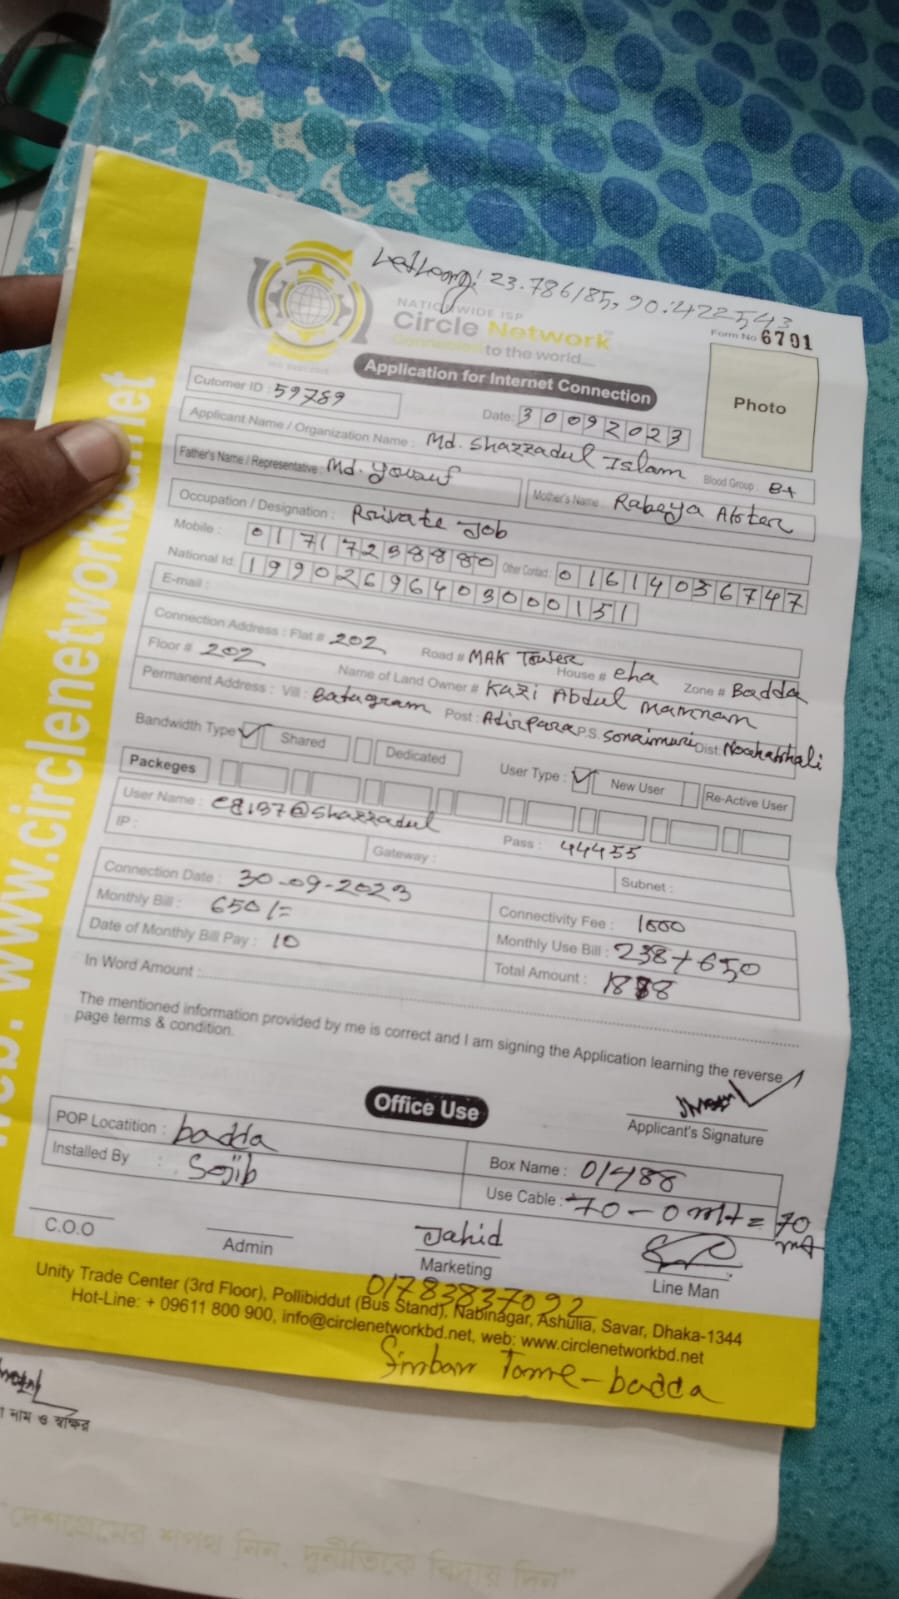 Latlong: 23.786185, 90.422543
NATIONWIDE ISP
Circle Network
Connected to the world....
Form No 6791
Application for Internet Connection
Photo
Cutomer ID : 59789
Date: 30092023
Applicant Name / Organization Name : Md. Shazzadul Islam
Blood Group : B+
Father's Name / Representative : Md. Yousuf
Mother's Name : Rabeya Akter
Occupation / Designation : Private Job
Mobile : 01717238880 Other Contact : 01614036747
National Id: 19902696403000151
E-mail :
Connection Address : Flat # 202 Road # MAK Tower House # cha Zone # Badda
Floor # 202 Name of Land Owner # Kazi Abdul Mannam
Permanent Address : Vill : Batagram Post : Adirpara P.S. Sonaimuri Dist: Noakahali
Bandwidth Type ✓ Shared Dedicated User Type : ✓ New User Re-Active User
Packeges
User Name : c8.137@shazzadul Pass : 44455
IP : Gateway : Subnet :
Connection Date : 30-09-2023 Connectivity Fee : 1000
Monthly Bill : 650/= Monthly Use Bill : 238+650
Date of Monthly Bill Pay : 10 Total Amount : 1888
In Word Amount :
The mentioned information provided by me is correct and I am signing the Application learning the reverse
page terms & condition.
Applicant's Signature
Office Use
POP Locatition : badda Box Name : 01488
Installed By : Sojib Use Cable : 70-0 mt = 70 mt
C.O.O Admin Jahid Marketing Line Man
01783837092
Unity Trade Center (3rd Floor), Pollibiddut (Bus Stand), Nabinagar, Ashulia, Savar, Dhaka-1344
Hot-Line: + 09611 800 900, info@circlenetworkbd.net, web: www.circlenetworkbd.net
Badda
web: www.circlenetworkbd.net
নাম ও স্বাক্ষর
"দেশপ্রেমের শপথ নিন, দুর্নীতিকে বিদায় দিন"